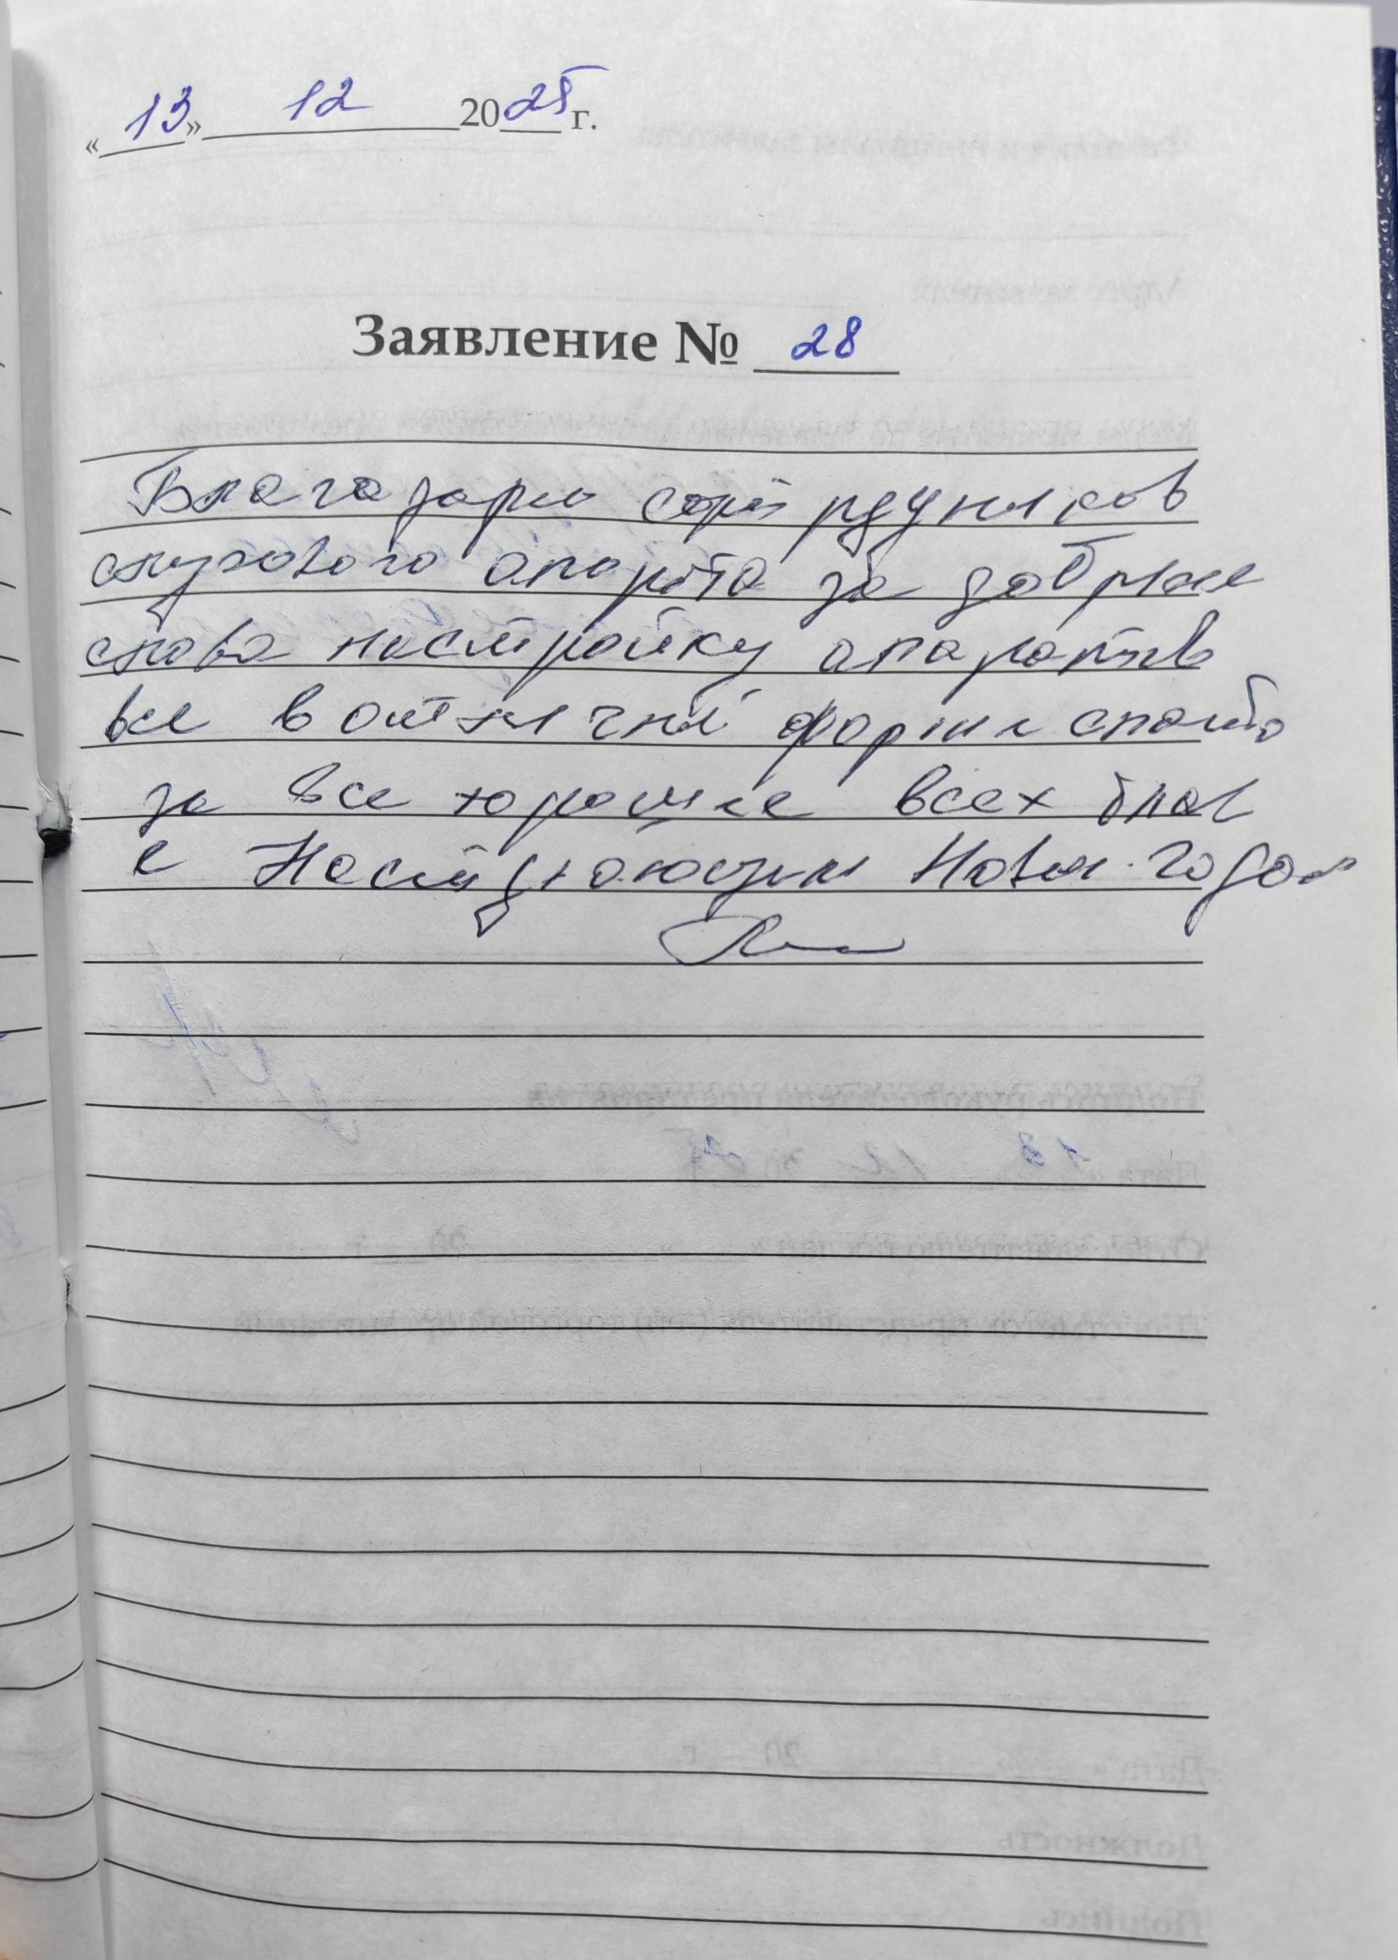 «13» 12 2025 г.
Заявление № 28
Благодарю сотрудников
слухового апарата за добрые
слова настройку апаратов
все в отличной форме спасибо
за все хорошее всех благ
с Наступающим Новым годом